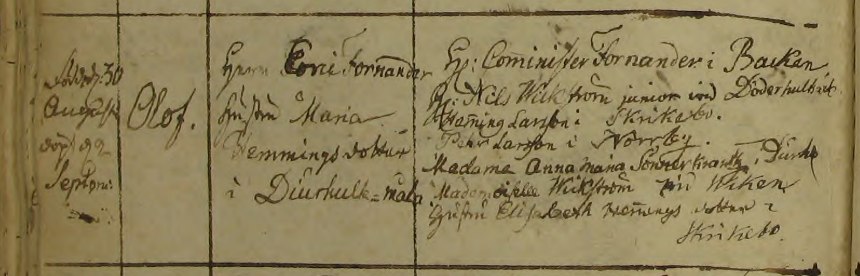 Född d: 30
August
döpt d 2
Septbr:
Olof.
Herr Fornander
Hustru Maria
Hemmings dotter
i Diurhult=måla
Hr: Cominister Fornander i Backen
Hr: Nils Wikström junior wid Döderhultsvik
Hemming Larsson i Skrikebo.
Pehr Larsson i Norrby.
Madame Anna Maria
Mademoiselle Wikström Wiken
Hustru Elisabeth Hemmings dotter i
Skrikebo.